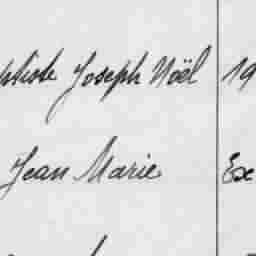 Joseph Noël 19
Jean Marie Ex